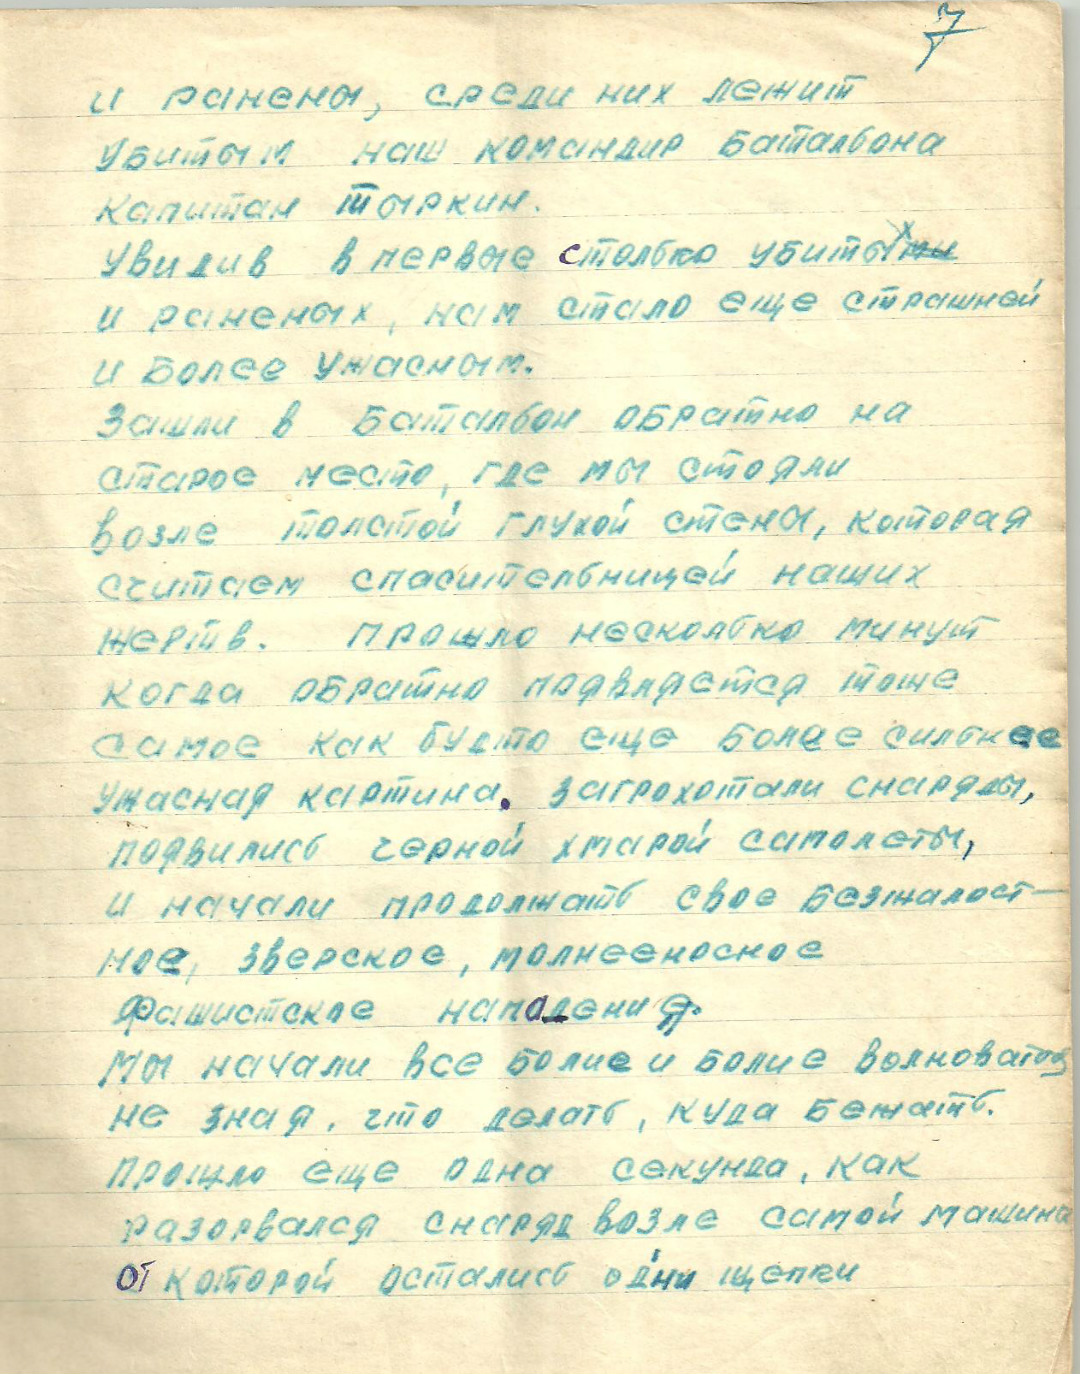 7
и ранены, среди них лежит
убитым наш командир Баталбона
капитан Тыркин.
Увидив в первые столбко убитых
и раненых, нам стало еще страшней
и более ужасным.
Зашли в Баталбон обратно на
старое место, где мы стояли
возле толстой глухой стены, которая
считаем спасителбницей наших
жертв. Прошло несколбко минут
когда обратно появляется тоже
самое как будто еще более силбнее
ужасная картина. Загрохотали снаряды,
появилисб черной хмарой самолеты,
и начали продолжатб свое безжалост-
ное, зверское, молнееносное
фашистское нападения.
Мы начали все болие и болие волноватся
не зная, что делатб, куда бежатб.
Прошло еще одна секунда, как
разорвался снаряд возле самой машина
от которой осталисб одни щепки